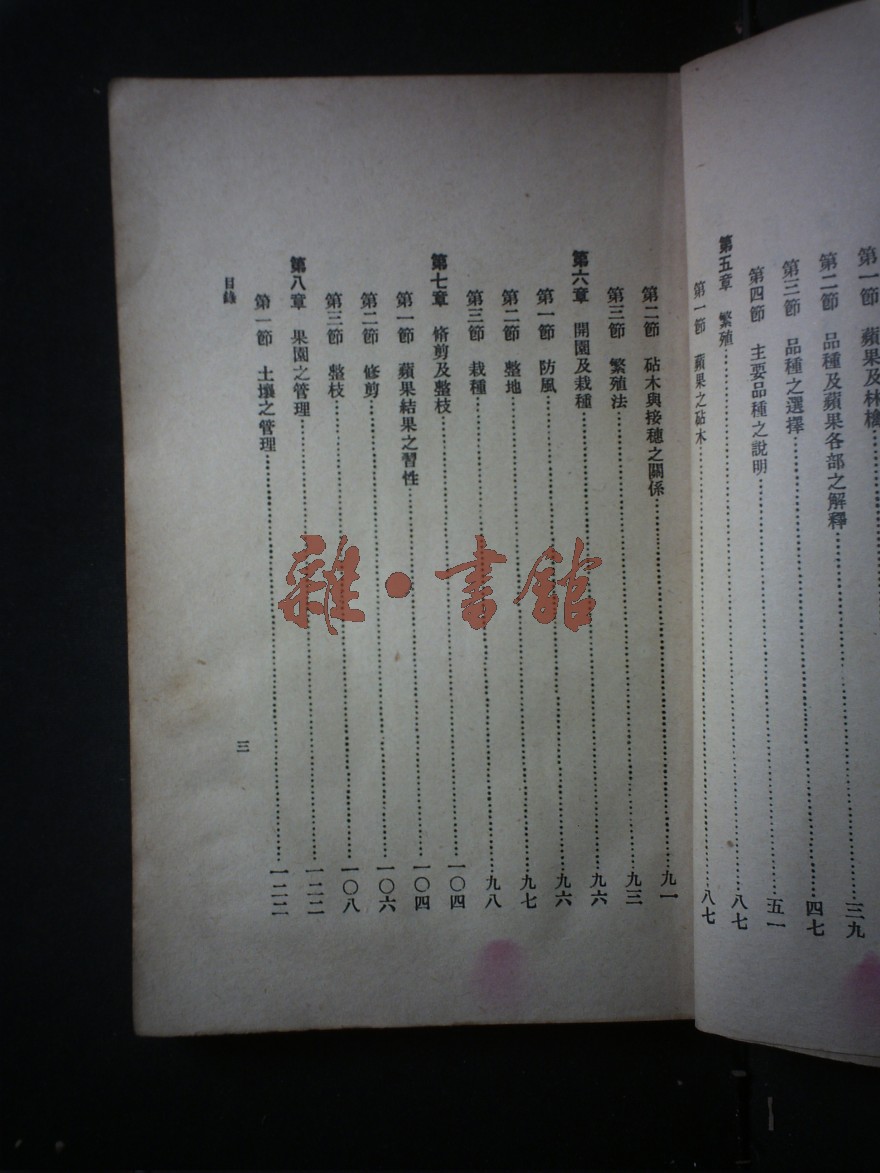 第一節 蘋果及林檎……三九
第二節 品種及蘋果各部之解釋……四七
第三節 品種之選擇
第四節 主要品種之說明……五一
第五章 繁殖……八七
第一節 蘋果之砧木……八七
第二節 砧木與接穗之關係……九一
第三節 繁殖法……九三
第六章 開園及栽種……九六
第一節 防風……九六
第二節 整地……九七
第三節 栽種……九八
第七章 修剪及整枝……一〇四
第一節 蘋果結果之習性……一〇四
第二節 修剪……一〇六
第三節 整枝……一〇八
第八章 果園之管理……一二二
第一節 土壤之管理……一二二
目錄
三
雜·書館